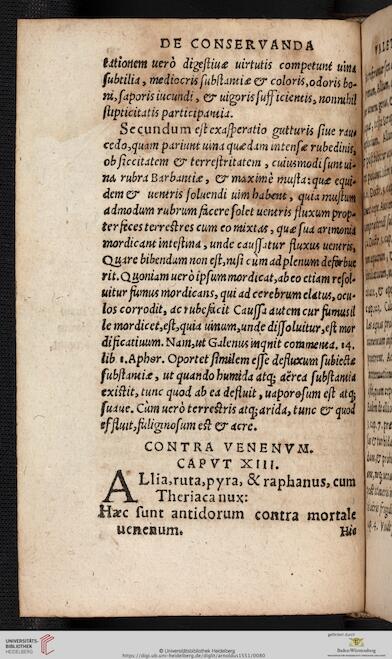 DE CONSERVANDA
tationem uerò digestiuæ uirtutis competunt uina
subtilia, mediocris substantiæ & coloris, odoris bo-
ni, saporis iucundi, & uigoris sufficientis, nonnihil
stipticitatis participantia.
Secundum est exasperatio gutturis siue rau-
cedo, quam pariunt uina quædam intensæ rubedinis,
ob siccitatem & terrestritatem, cuiusmodi sunt ui-
na rubra Barbantiæ, & maximè musta: quæ equi-
dem & uentris soluendi uim habent, quia mustum
admodum rubrum facere solet uentris fluxum prop-
ter feces terrestres cum eo mixtas, quæ sua acrimonia
mordicant intestina, unde caussatur fluxus uentris,
Quare bibendum non est, nisi cum ad plenum deferbue
rit. Quoniam uerò ipsum mordicat, ab eo etiam resol-
uitur fumus mordicans, qui ad cerebrum elatus, ocu-
los corrodit, ac rubefacit Caussa autem cur fumus il
le mordicet, est, quia uinum, unde dissoluitur, est mor
dificatiuum. Nam, ut Galenus inquit commenta. 14.
lib 1. Aphor. Oportet similem esse defluxum subiectæ
substantiæ, ut quando humida atq; aërea substantia
existit, tunc quod ab ea defluit, uaporosum est atq;
suaue. Cum uerò terrestris atq; arida, tunc & quod
effluit, fuliginosum est & acre.
CONTRA VENENVM.
CAPVT XIII.
ALlia, ruta, pyra, & raphanus, cum
Theriaca nux:
Hæc sunt antidorum contra mortale
uenenum.
Hic
UNIVERSITÄTS-
BIBLIOTHEK
HEIDELBERG
© Universitätsbibliothek Heidelberg
https://digi.ub.uni-heidelberg.de/diglit/arnoldus1551/0080
gefördert durch
Baden-Württemberg